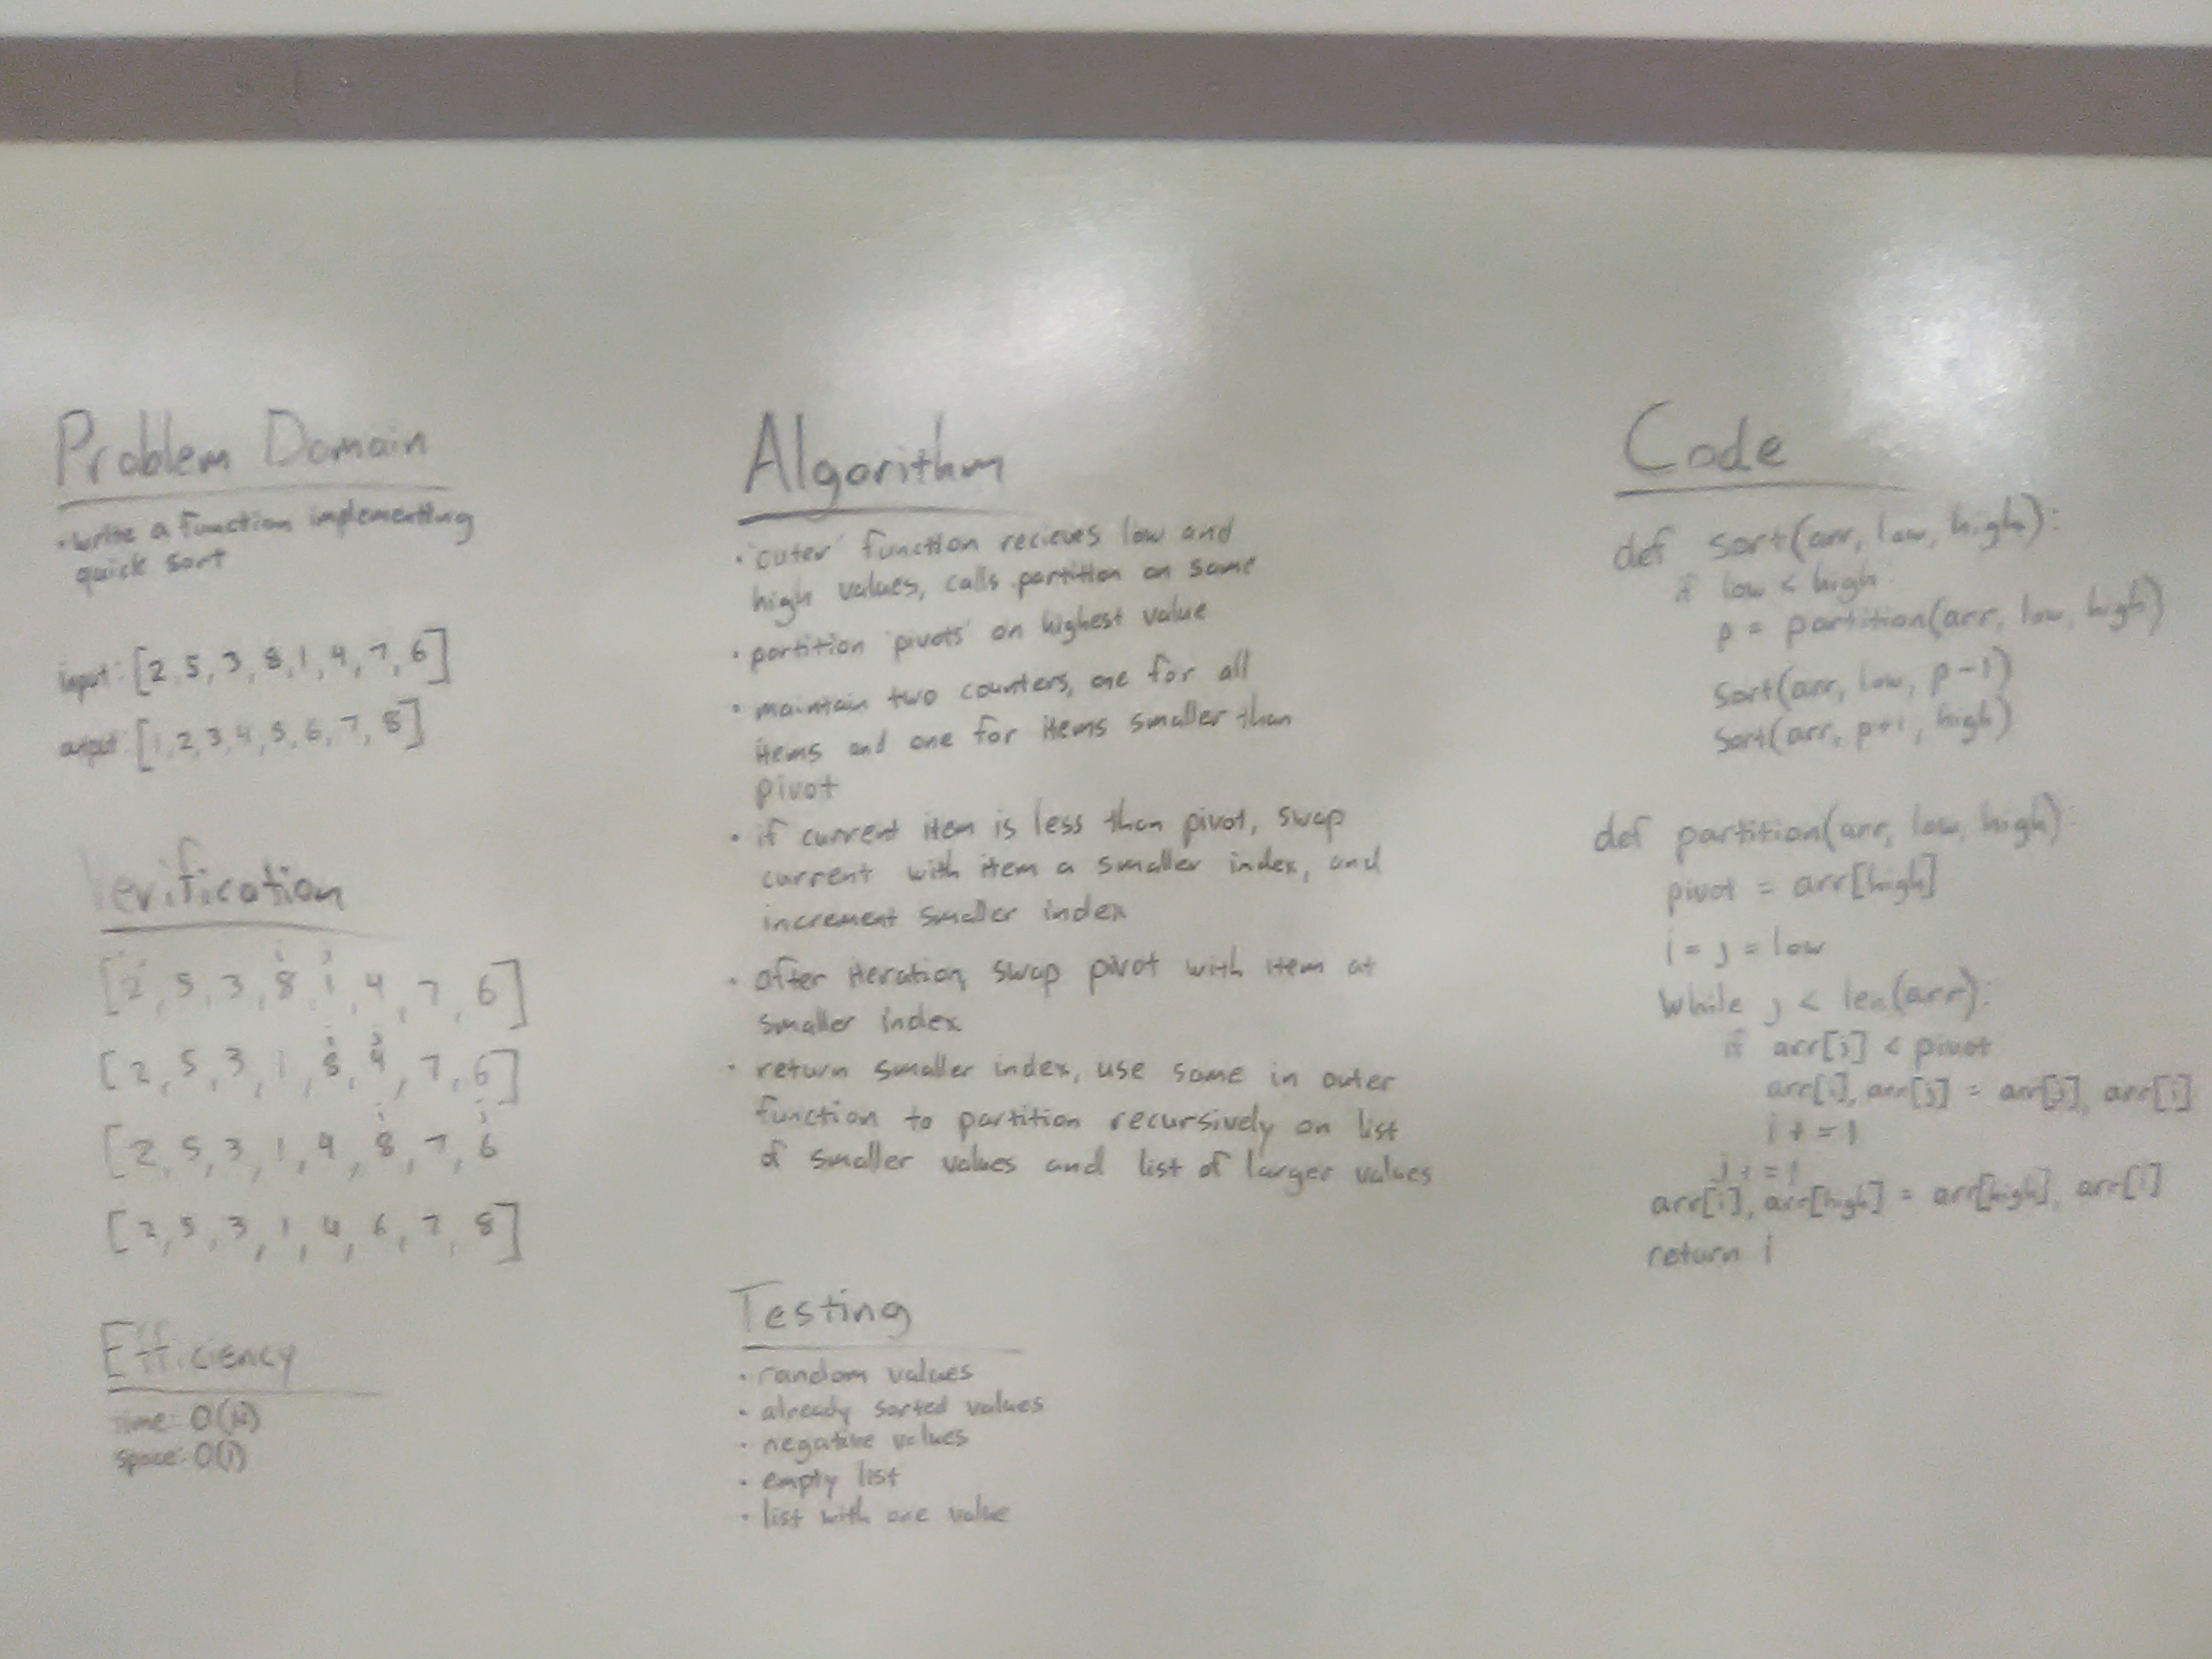 Problem Domain
• write a function implementing
quick sort
input: [2, 5, 3, 8, 1, 4, 7, 6]
output: [1, 2, 3, 4, 5, 6, 7, 8]
Verification
i j
[2, 5, 3, 8, 1, 4, 7, 6]
i j
[2, 5, 3, 1, 8, 4, 7, 6]
i j
[2, 5, 3, 1, 4, 8, 7, 6
[2, 5, 3, 1, 4, 6, 7, 8]
Efficiency
time: O(N)
space: O(1)
Algorithm
• 'outer' function recieves low and
high values, calls partition on same
• partition 'pivots' on highest value
• maintain two counters, one for all
items and one for items smaller than
pivot
• if current item is less than pivot, swap
current with item a smaller index, and
increment smaller index
• after iteration, swap pivot with item at
smaller index
• return smaller index, use same in outer
function to partition recursively on list
of smaller values and list of larger values
Testing
• random values
• already sorted values
• negative values
• empty list
• list with one value
Code
def sort(arr, low, high):
if low < high
p = partition(arr, low, high)
sort(arr, low, p-1)
sort(arr, p+1, high)
def partition(arr, low, high):
pivot = arr[high]
i = j = low
while j < len(arr):
if arr[j] < pivot
arr[i], arr[j] = arr[j], arr[i]
i += 1
j += 1
arr[i], arr[high] = arr[high], arr[i]
return i